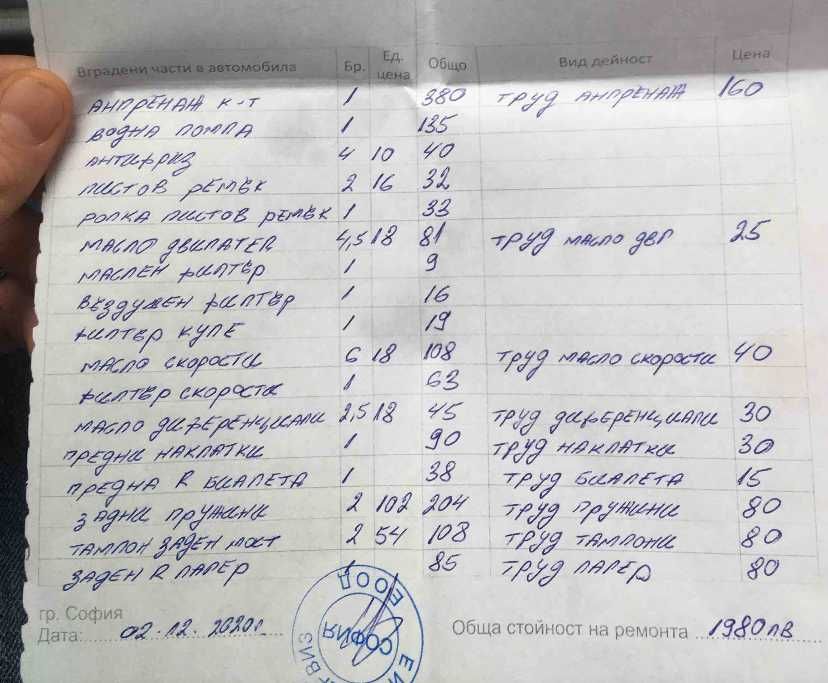 Вградени части в автомобила Бр. Ед. цена Общо Вид дейност Цена
АНГРЕНАЖ К-Т 1 380 ТРУД АНГРЕНАЖ 160
ВОДНА ПОМПА 1 135
АНТИФРИЗ 4 10 40
ПИСТОВ РЕМЪК 2 16 32
РОЛКА ПИСТОВ РЕМЪК 1 33
МАСЛО ДВИГАТЕЛ 4,5 18 81 ТРУД МАСЛО ДВГ 25
МАСЛЕН ФИЛТЪР 1 9
ВЪЗДУШЕН ФИЛТЪР 1 16
ФИЛТЪР КУПЕ 1 19
МАСЛО СКОРОСТИ 6 18 108 ТРУД МАСЛО СКОРОСТИ 40
ФИЛТЪР СКОРОСТИ 1 63
МАСЛО ДИФЕРЕНЦИАЛИ 2,5 18 45 ТРУД ДИФЕРЕНЦИАЛИ 30
ПРЕДНИ НАКЛАДКИ 1 90 ТРУД НАКЛАДКИ 30
ПРЕДНА R БИАЛЕТА 1 38 ТРУД БИАЛЕТА 15
ЗАДНИ ПРУЖИНИ 2 102 204 ТРУД ПРУЖИНИ 80
ТАМПОН ЗАДЕН МОСТ 2 54 108 ТРУД ТАМПОНИ 80
ЗАДЕН R ЛАГЕР 1 85 ТРУД ЛАГЕР 80
гр. София
Дата: 02.12.2020г. Обща стойност на ремонта 1980лв
ЕООД
СОФИЯ